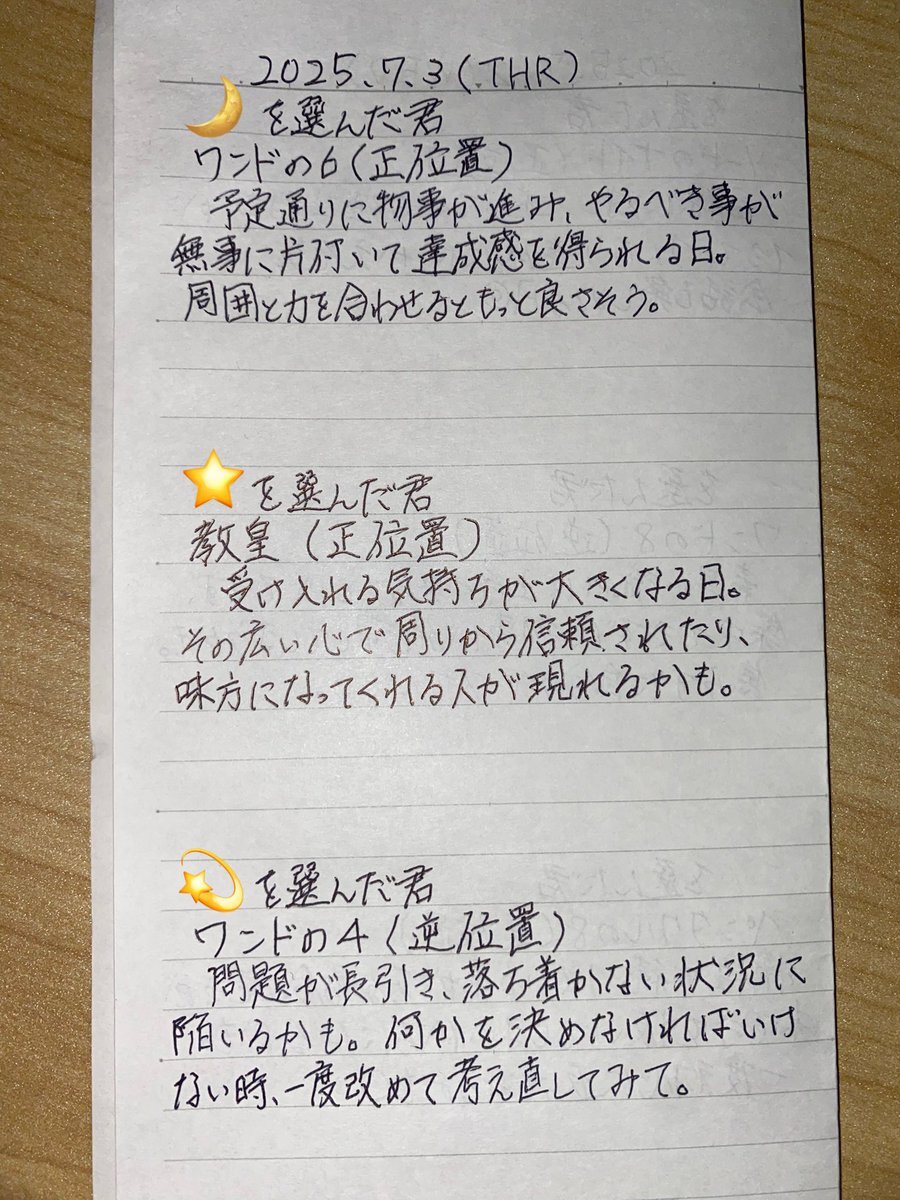 2025.7.3(THR)
🌙を選んだ君
ワンドの6(正位置)
予定通りに物事が進み、やるべき事が
無事に片付いて達成感を得られる日。
周囲と力を合わせるともっと良さそう。
⭐を選んだ君
教皇(正位置)
受け入れる気持ちが大きくなる日。
その広い心で周りから信頼されたり、
味方になってくれる人が現れるかも。
💫を選んだ君
ワンドの4(逆位置)
問題が長引き、落ち着かない状況に
陥いるかも。何かを決めなければいけ
ない時、一度改めて考え直してみて。